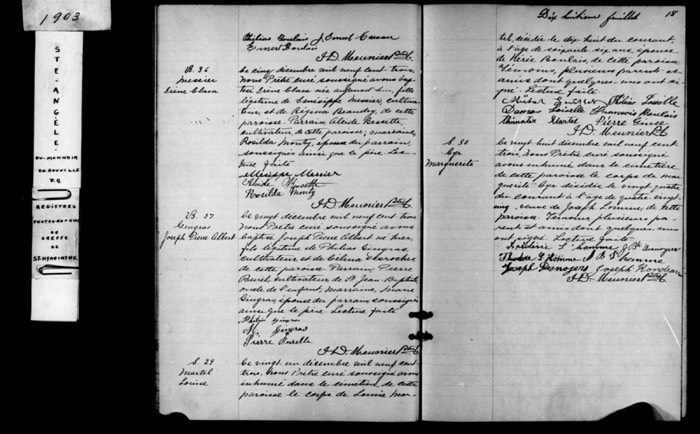 1903
STE-ANGÈLE
DU MONNOIR
CO. ROUVILLE
P.Q.
REGISTRES
AU
GREFFE
DE
ST-HYACINTHE
J. D. Meunier Ptre C.
B. 36
Messier
Irène Clara
Ce cinq décembre mil neuf cent trois,
Nous Prêtre curé soussigné avons bap-
tisé Irène Clara née aujourd'hui, fille
légitime de Ménésippe Messier cultiva-
teur, et de Régina Beaudry, de cette
paroisse. Parrain Alcide Rossette,
cultivateur de cette paroisse; marraine,
Rosilda Monty, épouse du parrain,
soussignés ainsi que le père. Lec-
ture faite
Ménésippe Messier
Alcide Rossette
Rosilda Monty
J. D. Meunier Ptre C.
B. 37
Gingras
Joseph Pierre Albert
Ce vingt décembre mil neuf cent trois
Nous Prêtre curé soussigné avons
baptisé Joseph Pierre Albert né hier,
fils légitime de Philias Gingras,
cultivateur et de Célina Desroches
de cette paroisse. Parrain, Pierre
cultivateur de St Jean Baptiste
oncle de l'enfant, marraine, Marie
Gingras, épouse du parrain, soussignés
ainsi que le père. Lecture faite
Philias Gingras
M. Gingras
Pierre
J. D. Meunier Ptre C.
S. 29
Martel
Louise
Ce vingt un décembre mil neuf cent
trois, Nous Prêtre curé soussigné avons
inhumé dans le cimetière de cette
paroisse le corps de Louise Mar-
Dix huitième feuillet
18
tel, décédée le dix huit du courant,
à l'âge de soixante six ans, épouse
de de cette paroisse
Témoins, plusieurs parents et
amis dont quelques uns ont si-
gné. Lecture faite
Loiselle
Pierre Gingras
J. D. Meunier Ptre C.
S. 30
Cyr
Marguerite
Ce vingt huit décembre mil neuf cent
trois, Nous Prêtre curé soussigné
avons inhumé dans le cimetière
de cette paroisse le corps de mar-
guerite Cyr décédée le vingt quatre
du courant à l'age de quatre vingt
ans, veuve de Joseph Lomme, de cette
paroisse. Témoins plusieurs pa-
rents et amis dont quelques uns
ont signé. Lecture faite
L'homme
Théodore L'Homme J. B. L'homme
Joseph Desnoyers Joseph Rondeau
J. D. Meunier Ptre C.